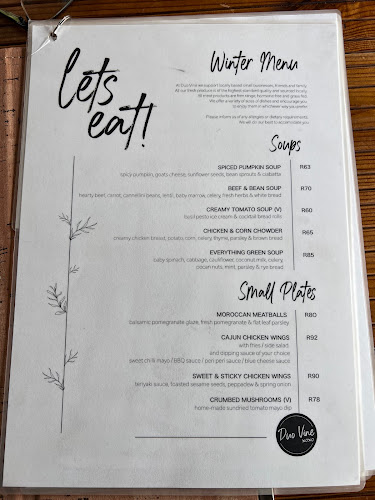 lets
eat!
Winter Menu
At Duo Vine we support locally based small businesses, farmers and family.
All our fresh produce is of the highest standard quality and sourced locally.
All meat products are free range, hormone free and grass-fed.
We offer a variety of sizes of dishes and encourage you
to enjoy them in whichever way you prefer.
Please inform us of any allergies or dietary requirements.
We will do our best to accommodate you.
Soups
SPICED PUMPKIN SOUP R63
spicy pumpkin, goats cheese, sunflower seeds, bean sprouts & ciabatta
BEEF & BEAN SOUP R70
hearty beef, carrot, cannellini beans, lentil, baby marrow, celery, fresh herbs & white bread
CREAMY TOMATO SOUP (V) R60
basil pesto ice-cream & cocktail bread rolls
CHICKEN & CORN CHOWDER R65
creamy chicken breast, potato, corn, celery, thyme, parsley & brown bread
EVERYTHING GREEN SOUP R85
baby spinach, cabbage, cauliflower, coconut milk, celery,
pecan nuts, mint, parsley & rye bread
Small Plates
MOROCCAN MEATBALLS R80
balsamic pomegranate glaze, fresh pomegranate & flat leaf parsley
CAJUN CHICKEN WINGS R92
with fries / side salad
and dipping sauce of your choice
sweet chilli mayo / BBQ sauce / peri peri sauce / blue cheese sauce
SWEET & STICKY CHICKEN WINGS R90
teriyaki sauce, toasted sesame seeds, peppadew & spring onion
CRUMBED MUSHROOMS (V) R78
home-made sundried tomato mayo dip
Duo Vine